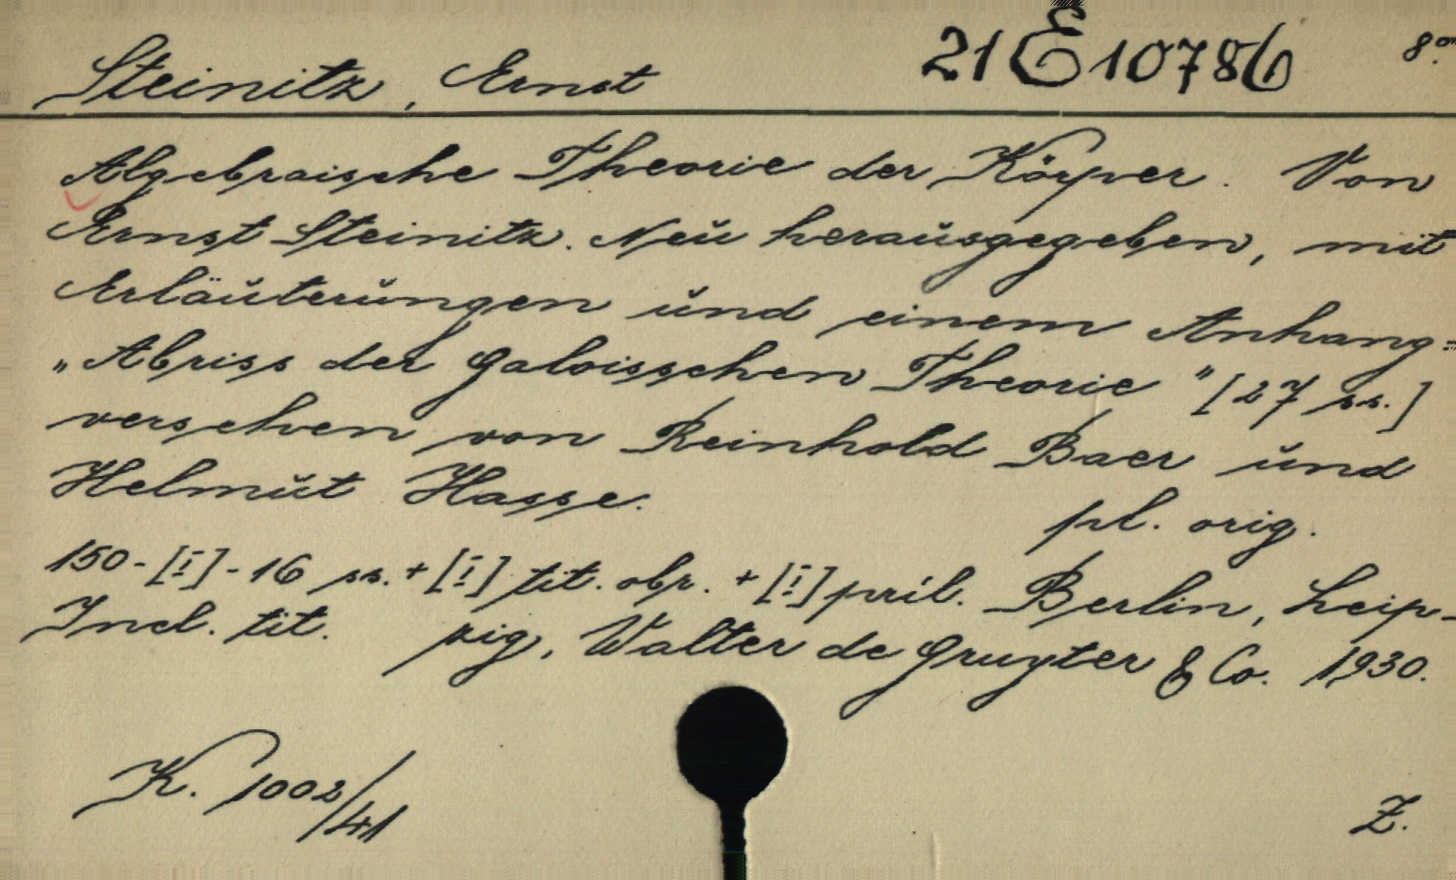 Steinitz, Ernst 21 E 10786 8°
Algebraische Theorie der Körper. Von
Ernst Steinitz. Neu herausgegeben, mit
Erläuterungen und einem Anhang:
„Abriss der Galoisschen Theorie" [27 ss.]
versehen von Reinhold Baer und
Helmut Hasse.
pl. orig.
150-[I]-16 ss. + [I] tit. obr. + [I] príl. Berlin, Leip-
Incl. tit. zig, Walter de Gruyter & Co. 1930.
K. 1002/41
Z.